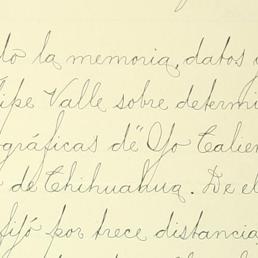 do la memoria, datos y
lipe Valle sobre determi
gráficas de "Ojo Calien
de Chihuahua. De el
fijó por trece distancia